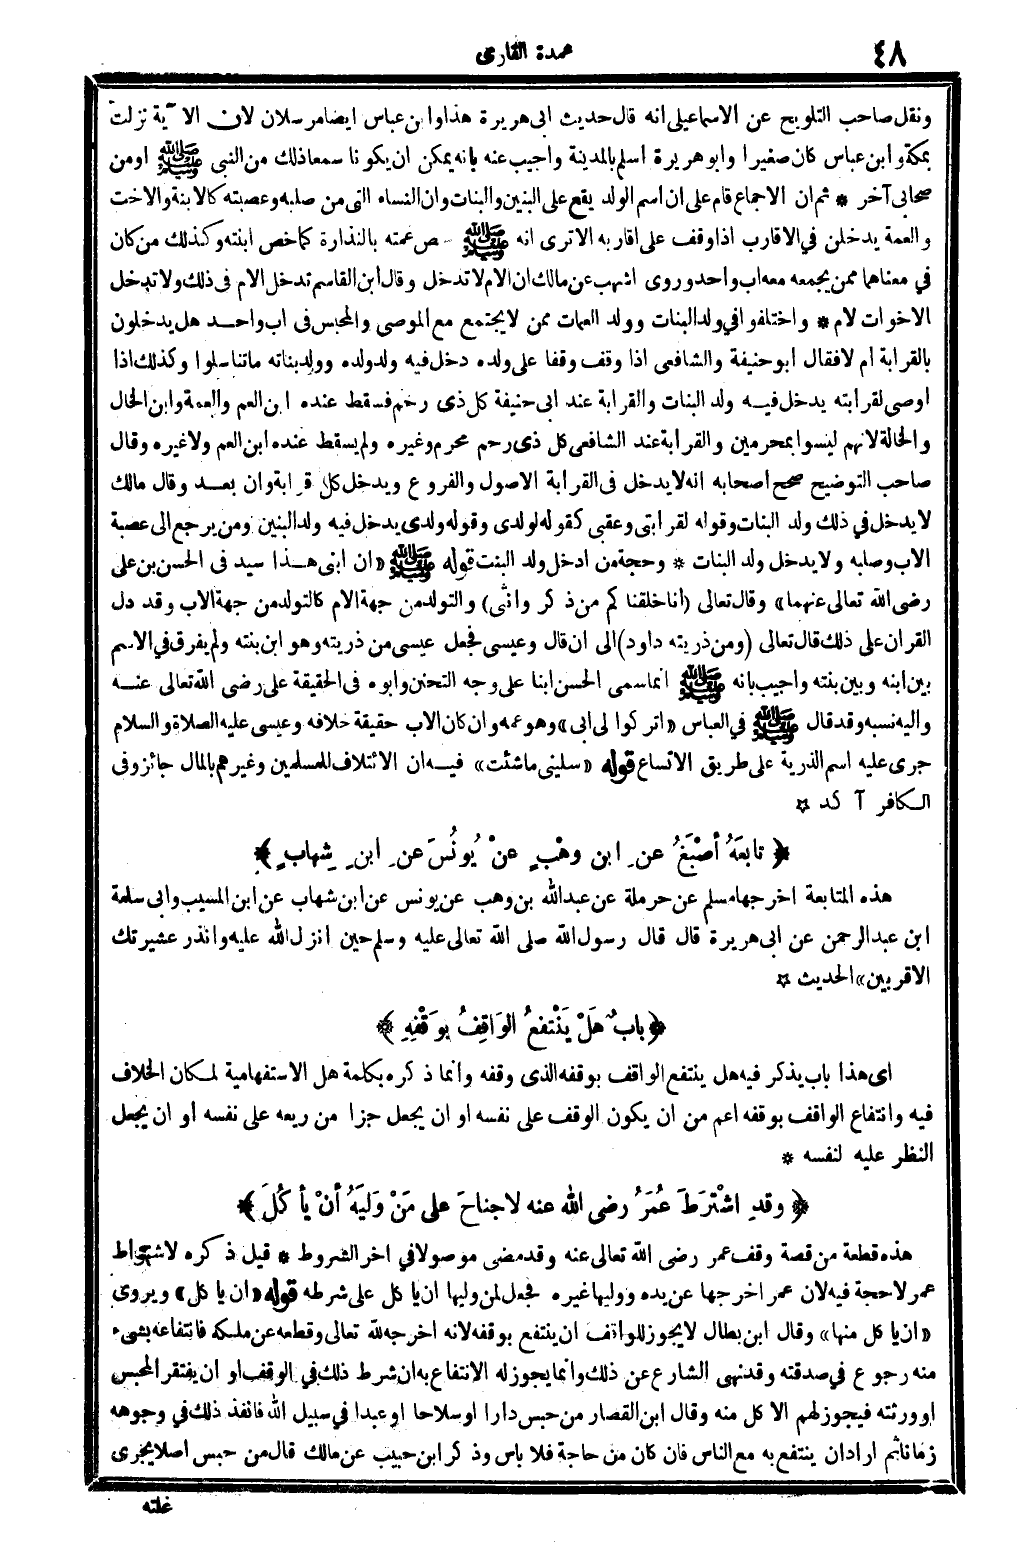 ٤٨
عمدة القارى
ونقل صاحب التلويح عن الاسماعيلى انه قال حديث ابى هريرة هذا وابن عباس ايضا مرسلان لان الآية نزلت
بمكة وابن عباس كان صغيرا وابو هريرة اسلم بالمدينة واجيب عنه بانه يمكن ان يكونا سمعا ذلك من النبى ﷺ او من
صحابى آخر * ثم ان الاجماع قام على ان اسم الولد يقع على البنين والبنات وان النساء التى من صلبه وعصبته كالابنة والاخت
والعمة يدخلن في الاقارب اذا وقف على اقاربه الاترى انه ﷺ ص عمته بالنذارة كما خص ابنته وكذلك من كان
في معناهما ممن يجمعه معه اب واحد وروى اشهب عن مالك ان الام لا تدخل وقال ابن القاسم تدخل الام فى ذلك ولا تدخل
الاخوات لام * واختلفوا في ولد البنات وولد العمات ممن لا يجتمع مع الموصى والمحبس فى اب واحد هل يدخلون
بالقرابة أم لا فقال أبو حنيفة والشافعى اذا وقف وقفا على ولده دخل فيه ولد ولده وولد بناته ما تناسلوا وكذلك اذا
اوصى لقرابته يدخل فيه ولد البنات والقرابة عند ابى حنيفة كل ذى رحم فسقط عنده ابن العم والعمة وابن الخال
والخالة لانهم ليسوا بمحرمين والقرابة عند الشافعى كل ذى رحم محرم وغيره ولم يسقط عنده ابن العم ولا غيره وقال
صاحب التوضيح صحح اصحابه انه لا يدخل فى القرابة الاصول والفروع ويدخل كل قرابة وان بعد وقال مالك
لا يدخل في ذلك ولد البنات وقوله لقرابتى وعقبى كقوله لولدى وقوله ولدى يدخل فيه ولد البنين ومن يرجع الى عصبة
الاب وصلبه ولا يدخل ولد البنات * وحجة من ادخل ولد البنت قوله ﷺ «ان ابنى هذا سيد فى الحسن بن على
رضى الله تعالى عنهما» وقال تعالى (أنا خلقنا كم من ذكر وانثى) والتولد من جهة الام كالتولد من جهة الاب وقد دل
القرآن على ذلك قال تعالى (ومن ذريته داود) الى ان قال وعيسى فجعل عيسى من ذريته وهو ابن بنته ولم يفرق في الاسم
بين ابنه وبين بنته واجيب بانه ﷺ انما سمى الحسن ابنا على وجه التحنن وابوه فى الحقيقة على رضى الله تعالى عنه
واليه نسبه وقد قال ﷺ في العباس «اتركوا لى ابى» وهو عمه وان كان الاب حقيقة خلافه وعيسى عليه الصلاة والسلام
جرى عليه اسم الذرية على طريق الاتساع قوله «سلينى ما شئت» فيه ان الائتلاف للمسلمين وغيرهم بالمال جائز وفى
الكافر آكد ✩
﴿ تابَعَهُ أصْبَغُ عنِ ابنِ وهْبٍ عنْ يُونُسَ عنِ ابنِ شِهابٍ ﴾
هذه المتابعة اخرجها مسلم عن حرملة عن عبد الله بن وهب عن يونس عن ابن شهاب عن ابن المسيب وابى سلمة
ابن عبد الرحمن عن ابى هريرة قال قال رسول الله صلى الله تعالى عليه وسلم حين انزل الله عليه وانذر عشيرتك
الاقربين» الحديث ✩
﴿ بابٌ هَلْ يَنْتَفعُ الوَاقِفُ بِوَقْفِهِ ﴾
اى هذا باب يذكر فيه هل ينتفع الواقف بوقفه الذى وقفه وانما ذكره بكلمة هل الاستفهامية لمكان الخلاف
فيه وانتفاع الواقف بوقفه اعم من ان يكون الوقف على نفسه او ان يجعل جزا من ريعه على نفسه او ان يجعل
النظر عليه لنفسه *
﴿ وقدِ اشْتَرَطَ عُمَرُ رضى الله عنه لا جناحَ على مَنْ وَلِيَهُ أنْ يأكُلَ ﴾
هذه قطعة من قصة وقف عمر رضى الله تعالى عنه وقد مضى موصولا في اخر الشروط * قيل ذكره لاشتراط
عمر لا حجة فيه لان عمر اخرجها عن يده ووليها غيره فجعل لمن وليها ان يأكل على شرطه قوله «ان يا كل» ويروى
«ان يا كل منها» وقال ابن بطال لا يجوز للواقف ان ينتفع بوقفه لانه اخرجه لله تعالى وقطعه عن ملكه فانتفاعه بشىء
منه رجوع في صدقته وقد نهى الشارع عن ذلك وانما يجوز له الانتفاع به ان شرط ذلك في الوقف او ان يفتقر المحبس
او ورثته فيجوز لهم الا كل منه وقال ابن القصار من حبس دارا او سلاحا او عبدا في سبيل الله فانفذ ذلك في وجوهه
زمانا ثم اراد ان ينتفع به مع الناس فان كان من حاجة فلا باس وذكر ابن حبيب عن مالك قال من حبس اصلا يجرى
غلته